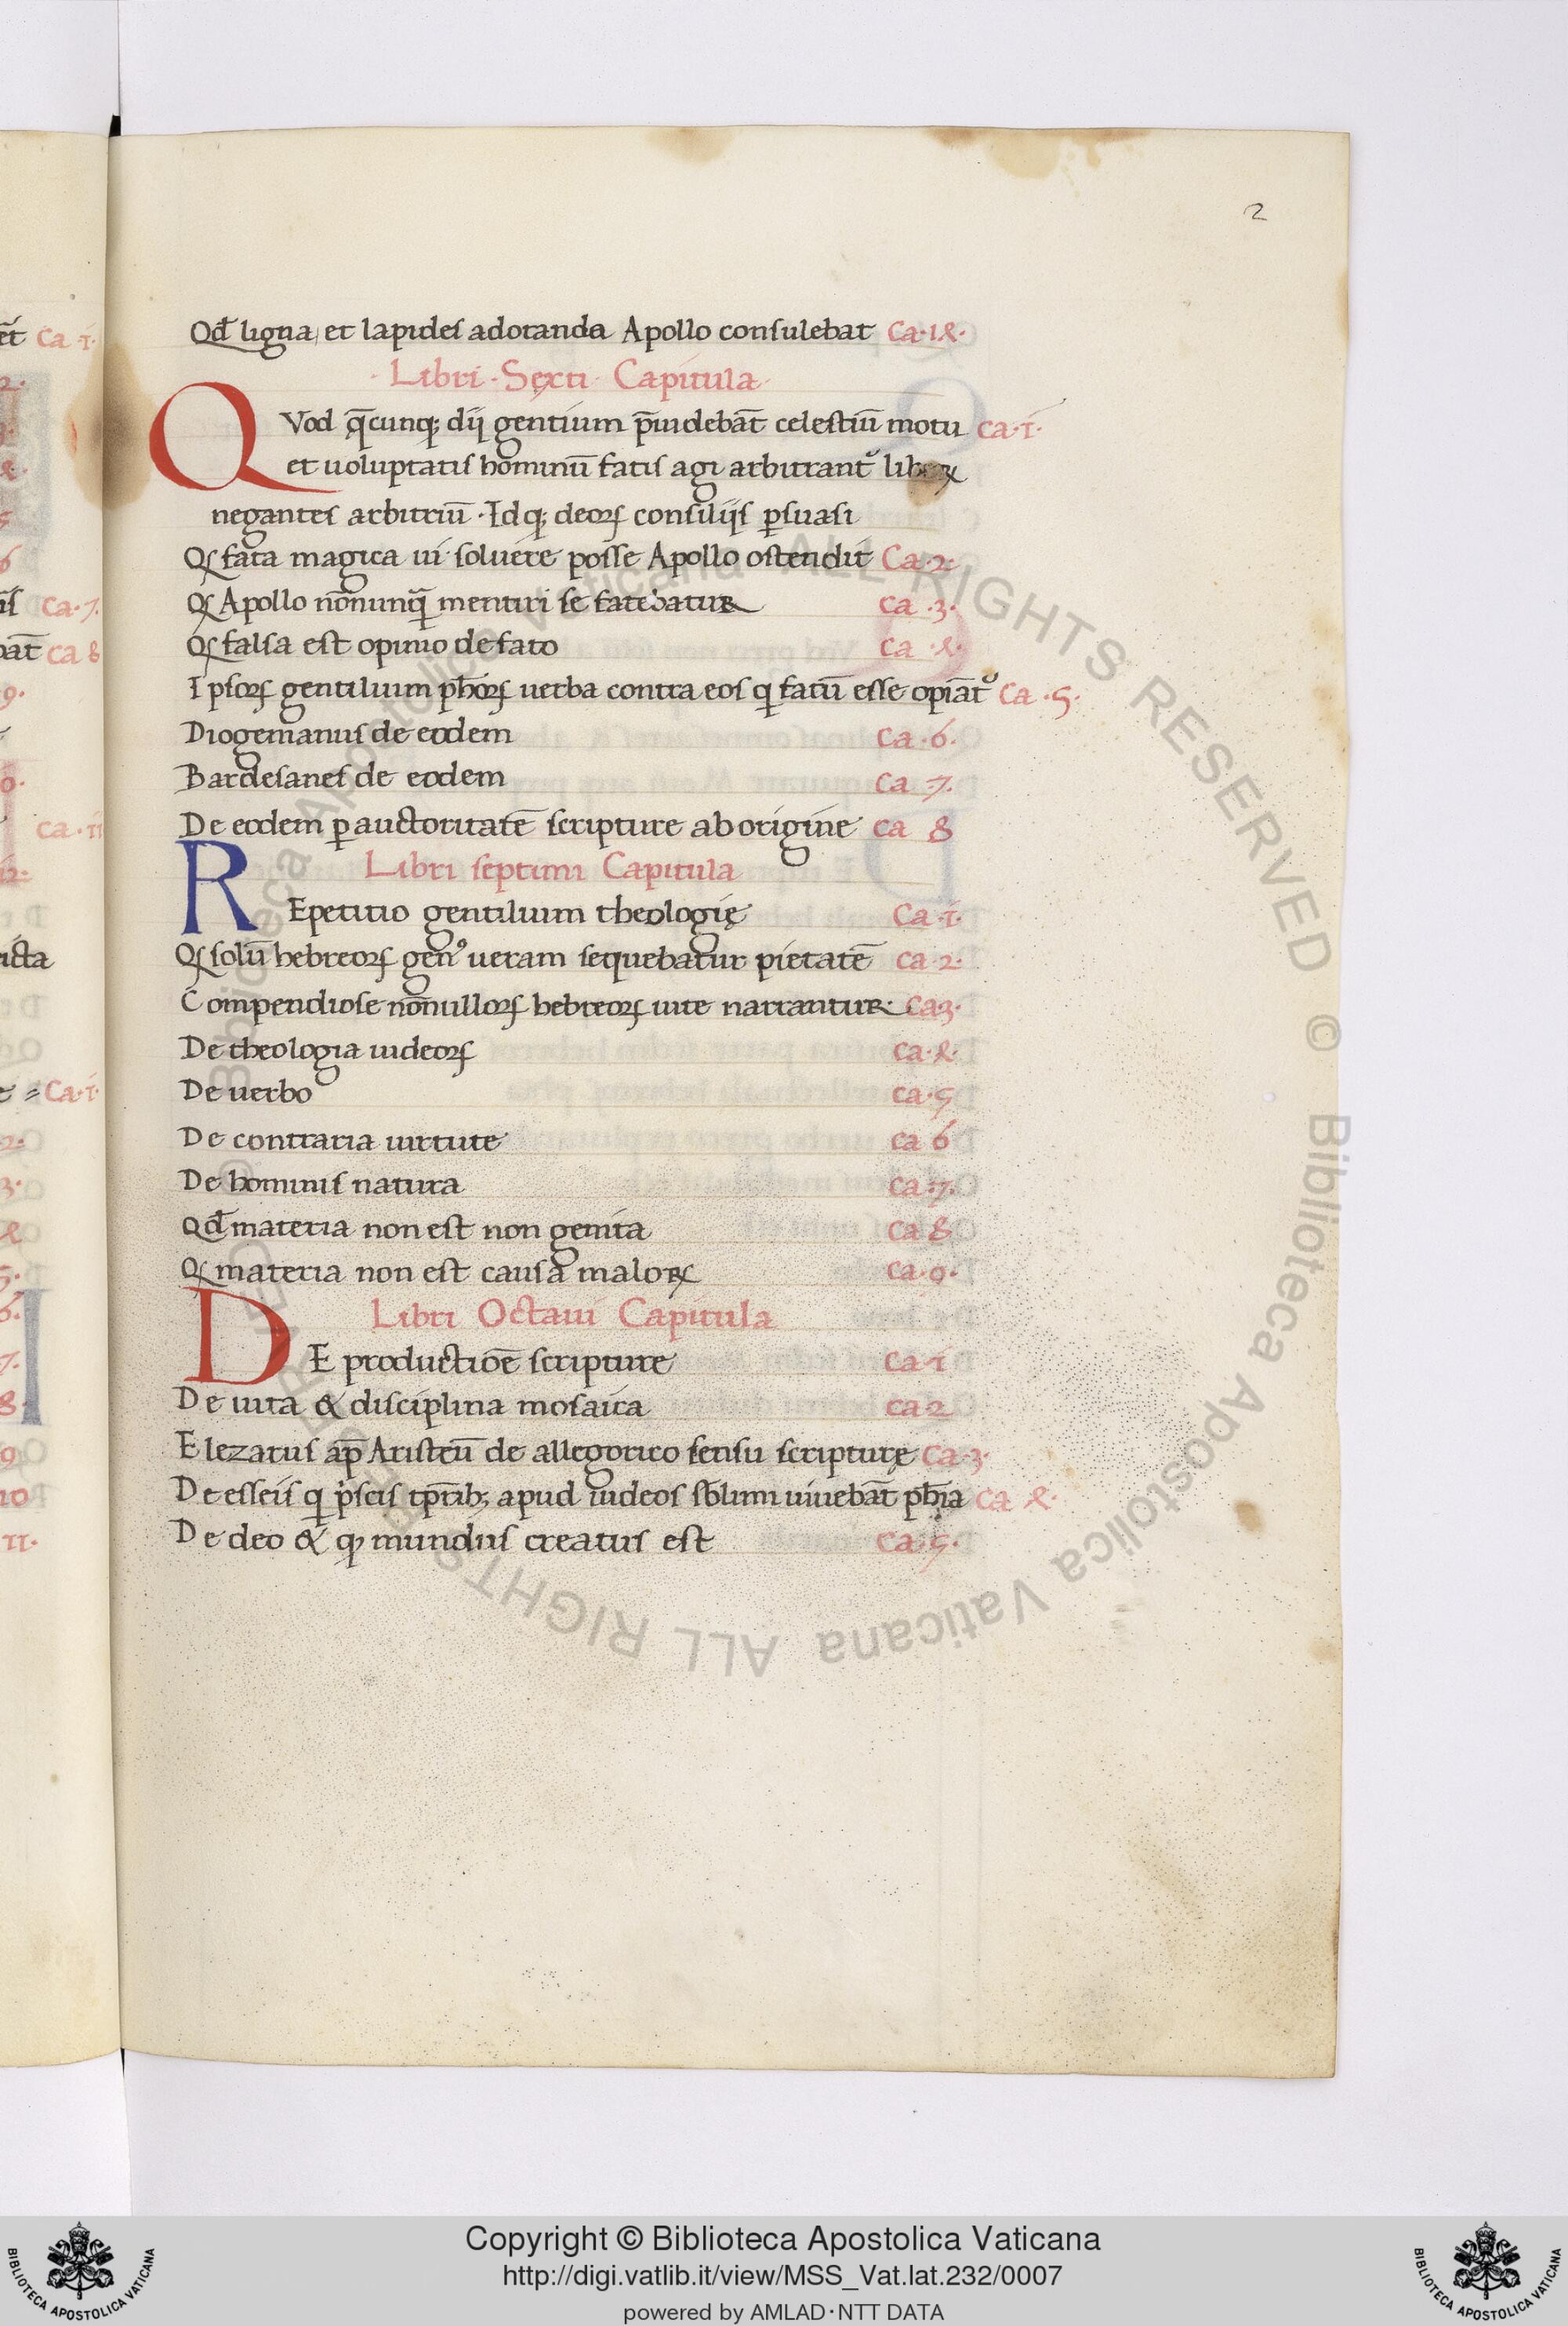 2
Qd̄ ligna, et lapides adoranda Apollo consulebat Ca·1ꝝ·
·Libri·Sexti· Capitula·
QVod q̄cunq; dij gentium p̄uidebāt celestiū motu Ca·1·
et uoluptatis hominū fatis agi arbitrant᷑ liberꝝ
negantes arbitriū·Idq; deoꝝ consilijs ꝑsuasi
Qꝫ fata magica ui soluere posse Apollo ostendit Ca·2·
Qꝫ Apollo nōnunq̄ mentiri se fatebatur ca·3·
Qꝫ falsa est opinio de fato ca·ꝝ·
Ipsoꝝ gentilium ph̄oꝝ uerba contra eos q fatū esse opiāt᷑ Ca·5·
Diogemanus de eodem ca·6·
Bardesanes de eodem ca 7·
De eodem ꝑ auctoritatē scripture ab origine ca 8
Libri septimi Capitula
REpetitio gentilium theologię Ca·1·
Qꝫ solū hebreoꝝ genꝰ ueram sequebatur pietatē ca·2·
Compendiose nōnulloꝝ hebreoꝝ uite narrantur· Ca3·
De theologia iudeoꝝ ca·ꝝ·
De uerbo ca·5
De contraria uirtute ca 6
De hominis natura ca·7·
Qd̄ materia non est non genita ca 8
Qꝫ materia non est causa maloꝝ ca·9·
Libri Octaui Capitula
DE productiōe scripture ca·1
De uita & disciplina mosaica ca·2
Elezarus ap̄ Aristeū de allegorico sensu scripturę Ca·3·
De esseis q pͥscis tp̄rib; apud iudeos sōlum uiuebāt ph̄ia ca ꝝ·
De deo & qꝫ mundus creatus est Ca·5·
Copyright © Biblioteca Apostolica Vaticana
http://digi.vatlib.it/view/MSS_Vat.lat.232/0007
powered by AMLAD·NTT DATA
BIBLIOTECA APOSTOLICA VATICANA
BIBLIOTECA APOSTOLICA VATICANA
© Biblioteca Apostolica Vaticana ALL RIGHTS RESERVED © Biblioteca Apostolica Vaticana ALL RIGHTS RESERVED